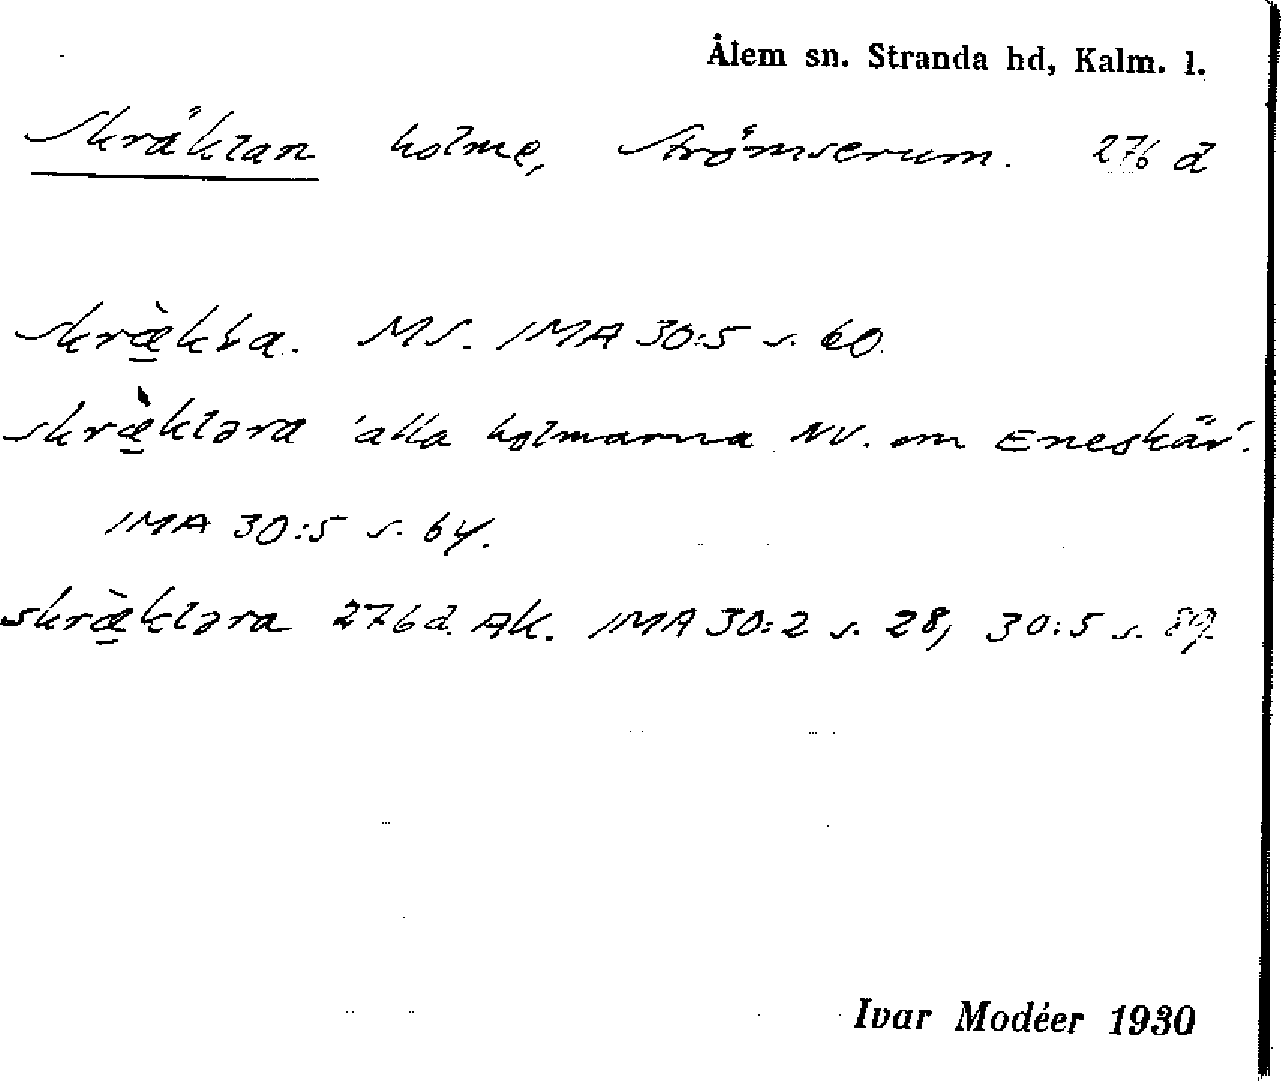 Ålem sn. Stranda hd, Kalm. l.
Skräklan holme, Strömserum. 276 d
skræ̀kla. MS. IMA 30:5 s. 60.
skræ̀kləra 'alla holmarna NV. om Eneskär'.
IMA 30:5 s. 64.
skræ̀kləra 276 d. AK. IMA 30:2 s. 28, 30:5 s. 89.
Ivar Modéer 1930